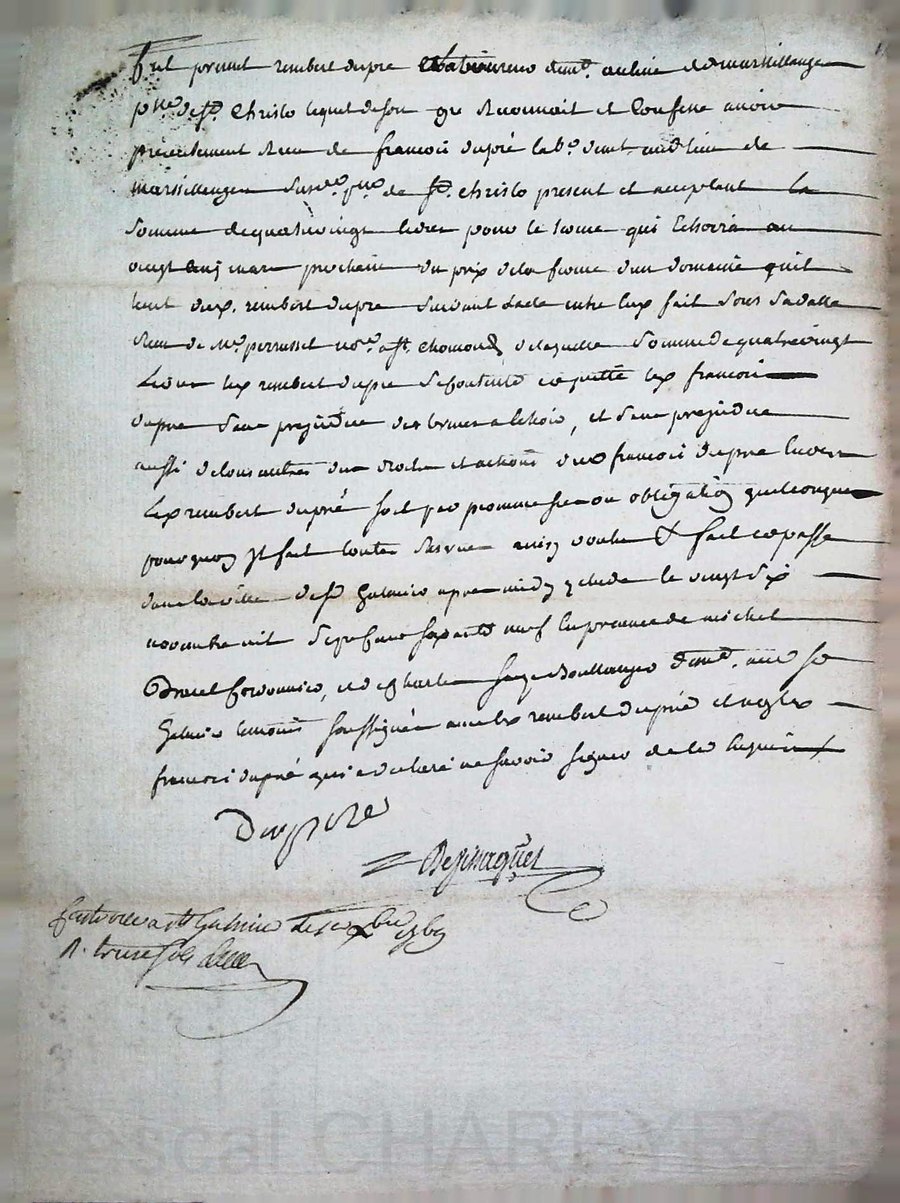 fut present rembert dupré laboureur demt. au lieu de marsillange
psse. de st. Christo lequel de son gre reconnait et Confesse avoir
presentement receu de francois dupré labr. demt. aud. lieu de
marsillange susde. psse. de st. Christo present et acceptant la
somme de quatrevingt livres pour le terme qui Echoira au
vingt cinq mars prochain du prix de la ferme dun domaine quil
tient dud. rembert dupré suivant lacte entre eux fait sous sa datte
receu de Me. perrussel nore. a st. chamond, de laquelle somme de quatrevingt
Livres led. rembert dupré se contente et quitte led. francois
dupré sans prejudice des termes a Echoir, et sans prejudice
aussi de tous autres deus droits et actions dud. francois dupré envers
Led. rembert dupré soit par promesses ou obligation quelconques
pour quoy Est fait toutes reserves ainsy voulu & fait et passé
dans la ville de st Galmier apres midy Etude le vingt six
novembre mil sept cent soixante neuf En presence de michel
Cordonnier, et de Charles Boullanger demt. aud. st
Galmier temoins soussignés avec led. rembert dupré et non led.
francois dupré qui a declaré ne savoir signer de ce Enquis
Dupré
Controllé a st Galmier le
R. treize sols
Pascal CHAREYRON